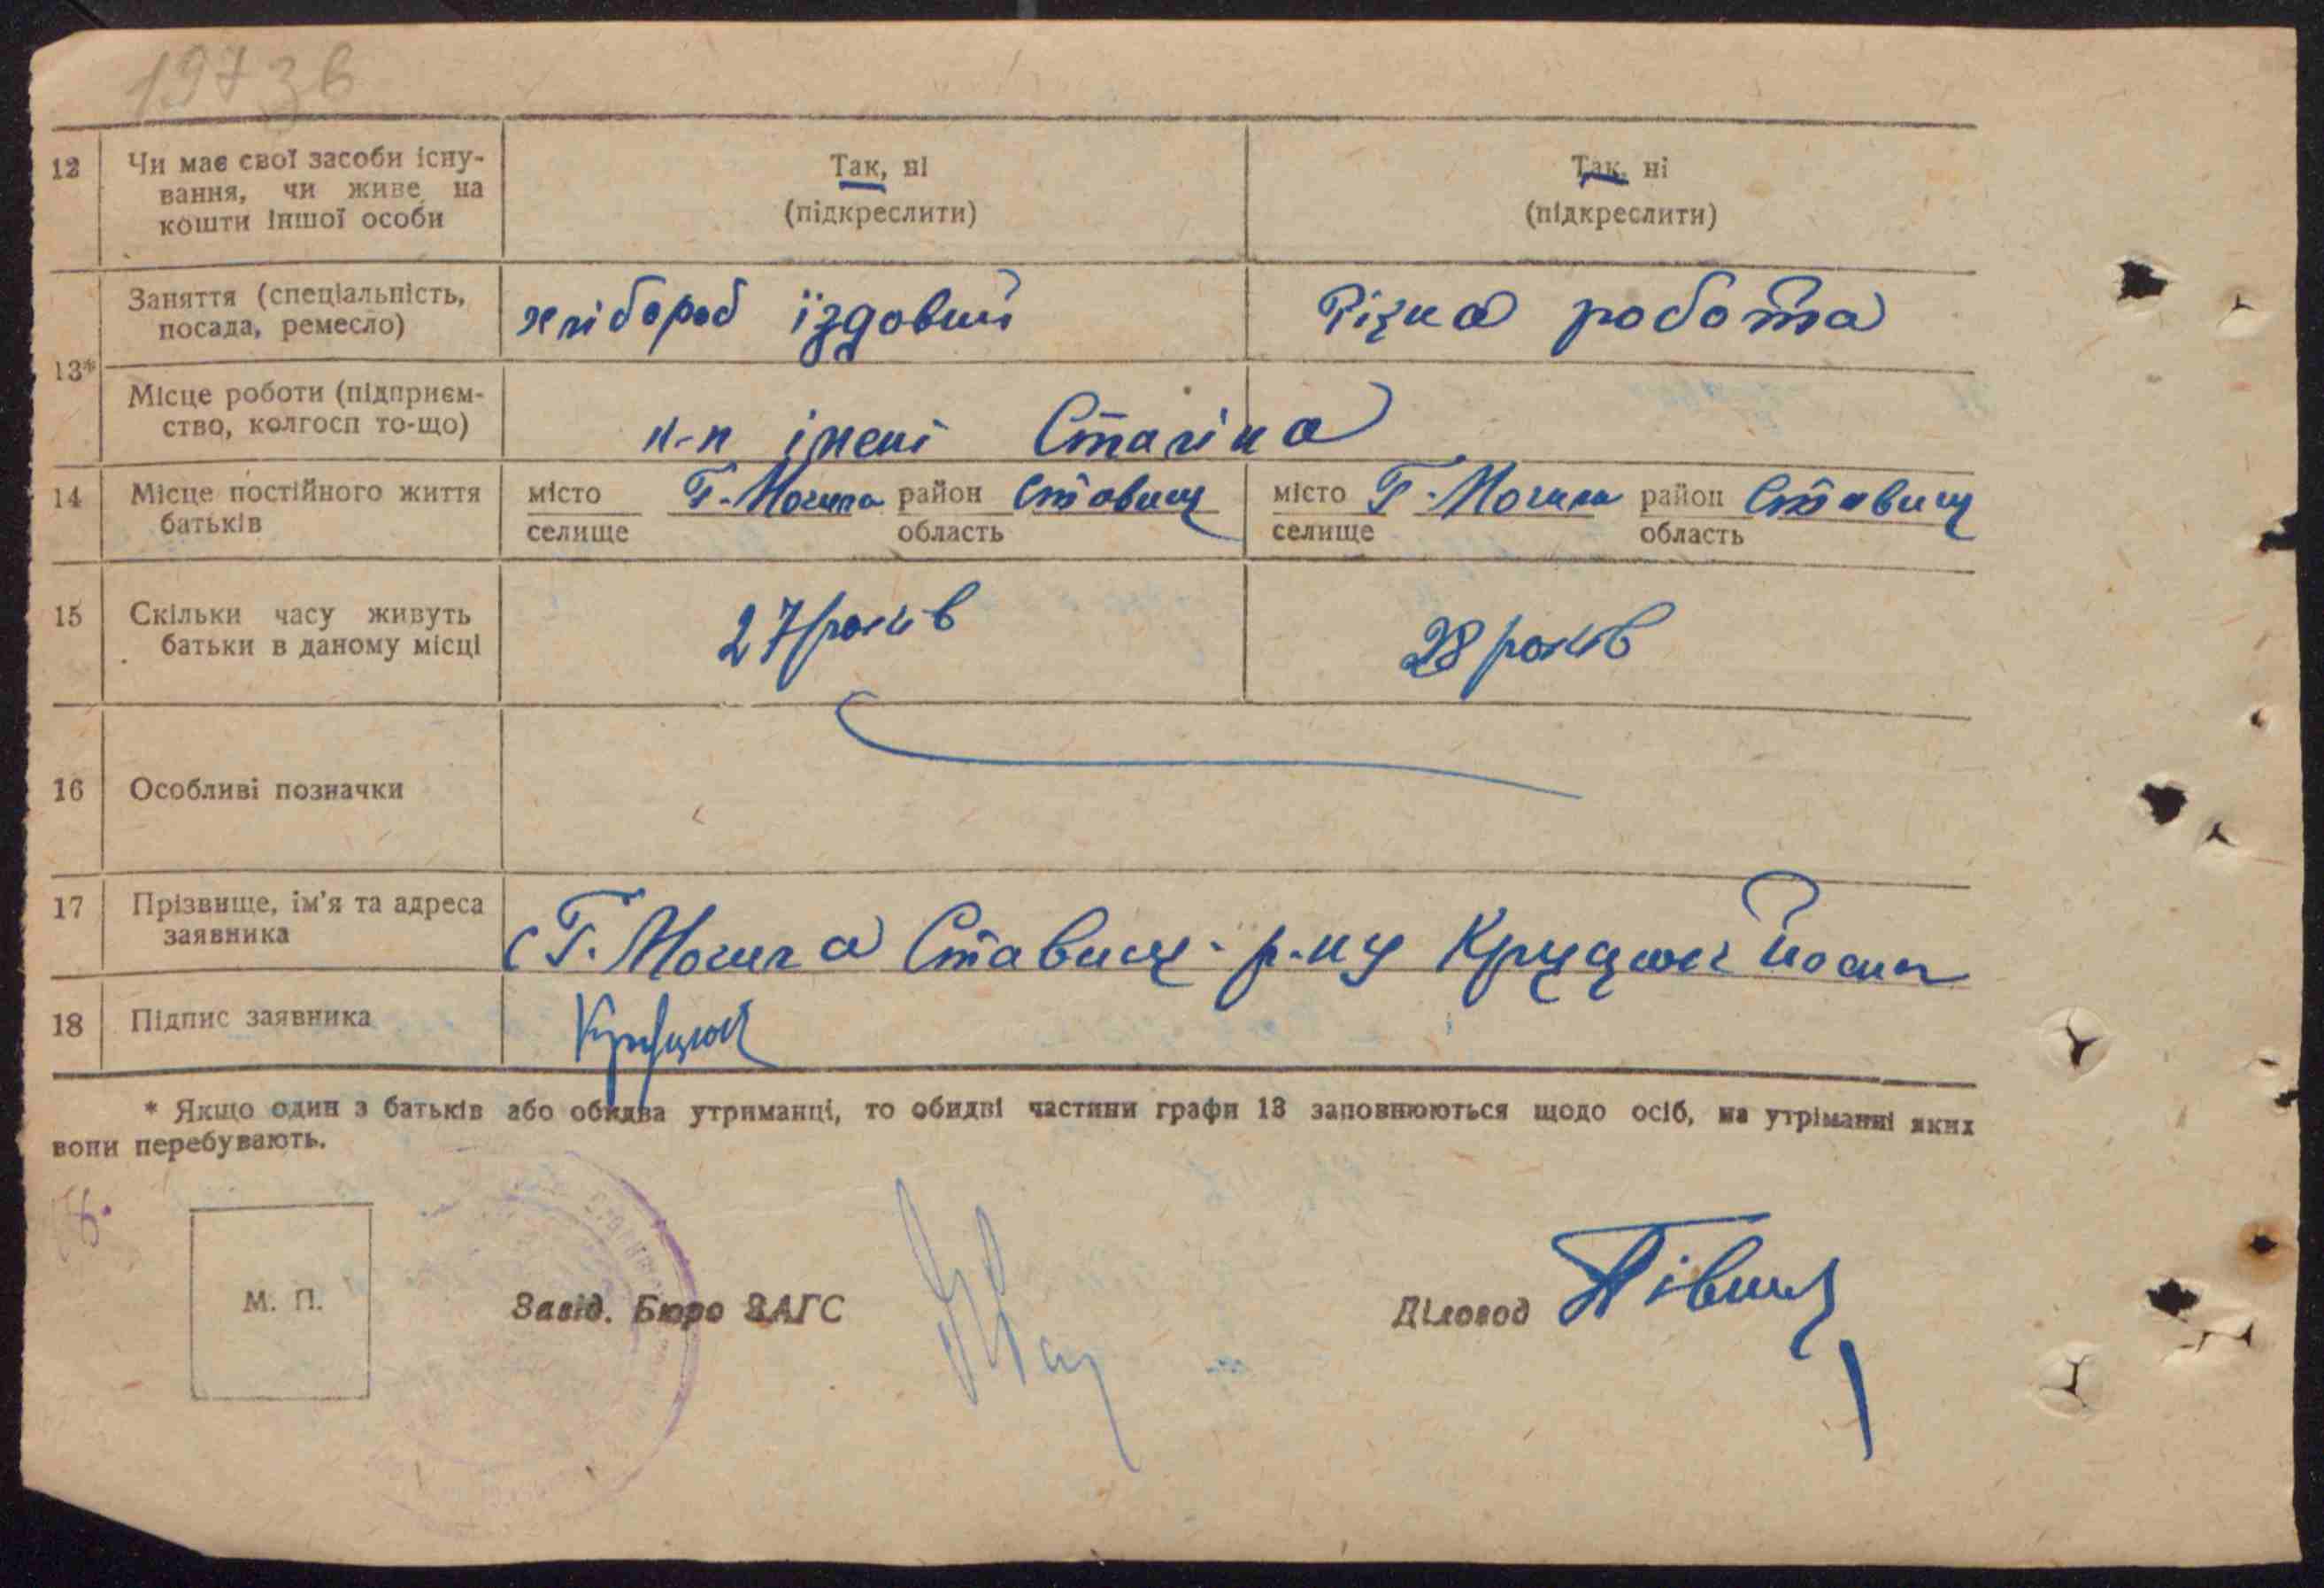 197 зв
12 Чи має свої засоби існу-
вання, чи живе на
кошти іншої особи
Так, ні
(підкреслити)
Так, ні
(підкреслити)
13*
Заняття (спеціальність,
посада, ремесло)
хлібороб їздовий
Різна робота
Місце роботи (підприєм-
ство, колгосп то-що)
к-п імені Сталіна
14 Місце постійного життя
батьків
місто Г-Могила район Ставищ
селище область
місто Г-Могила район Ставищ
селище область
15 Скільки часу живуть
батьки в даному місці
27 років
28 років
16 Особливі позначки
17 Прізвище, ім'я та адреса
заявника
с Г. Могила Ставищ. р-ну
18 Підпис заявника
* Якщо один з батьків або обидва утриманці, то обидві частини графи 13 заповнюються щодо осіб, на утріманні яких
вони перебувають.
М. П.
Завід. Бюро ЗАГС
Діловод